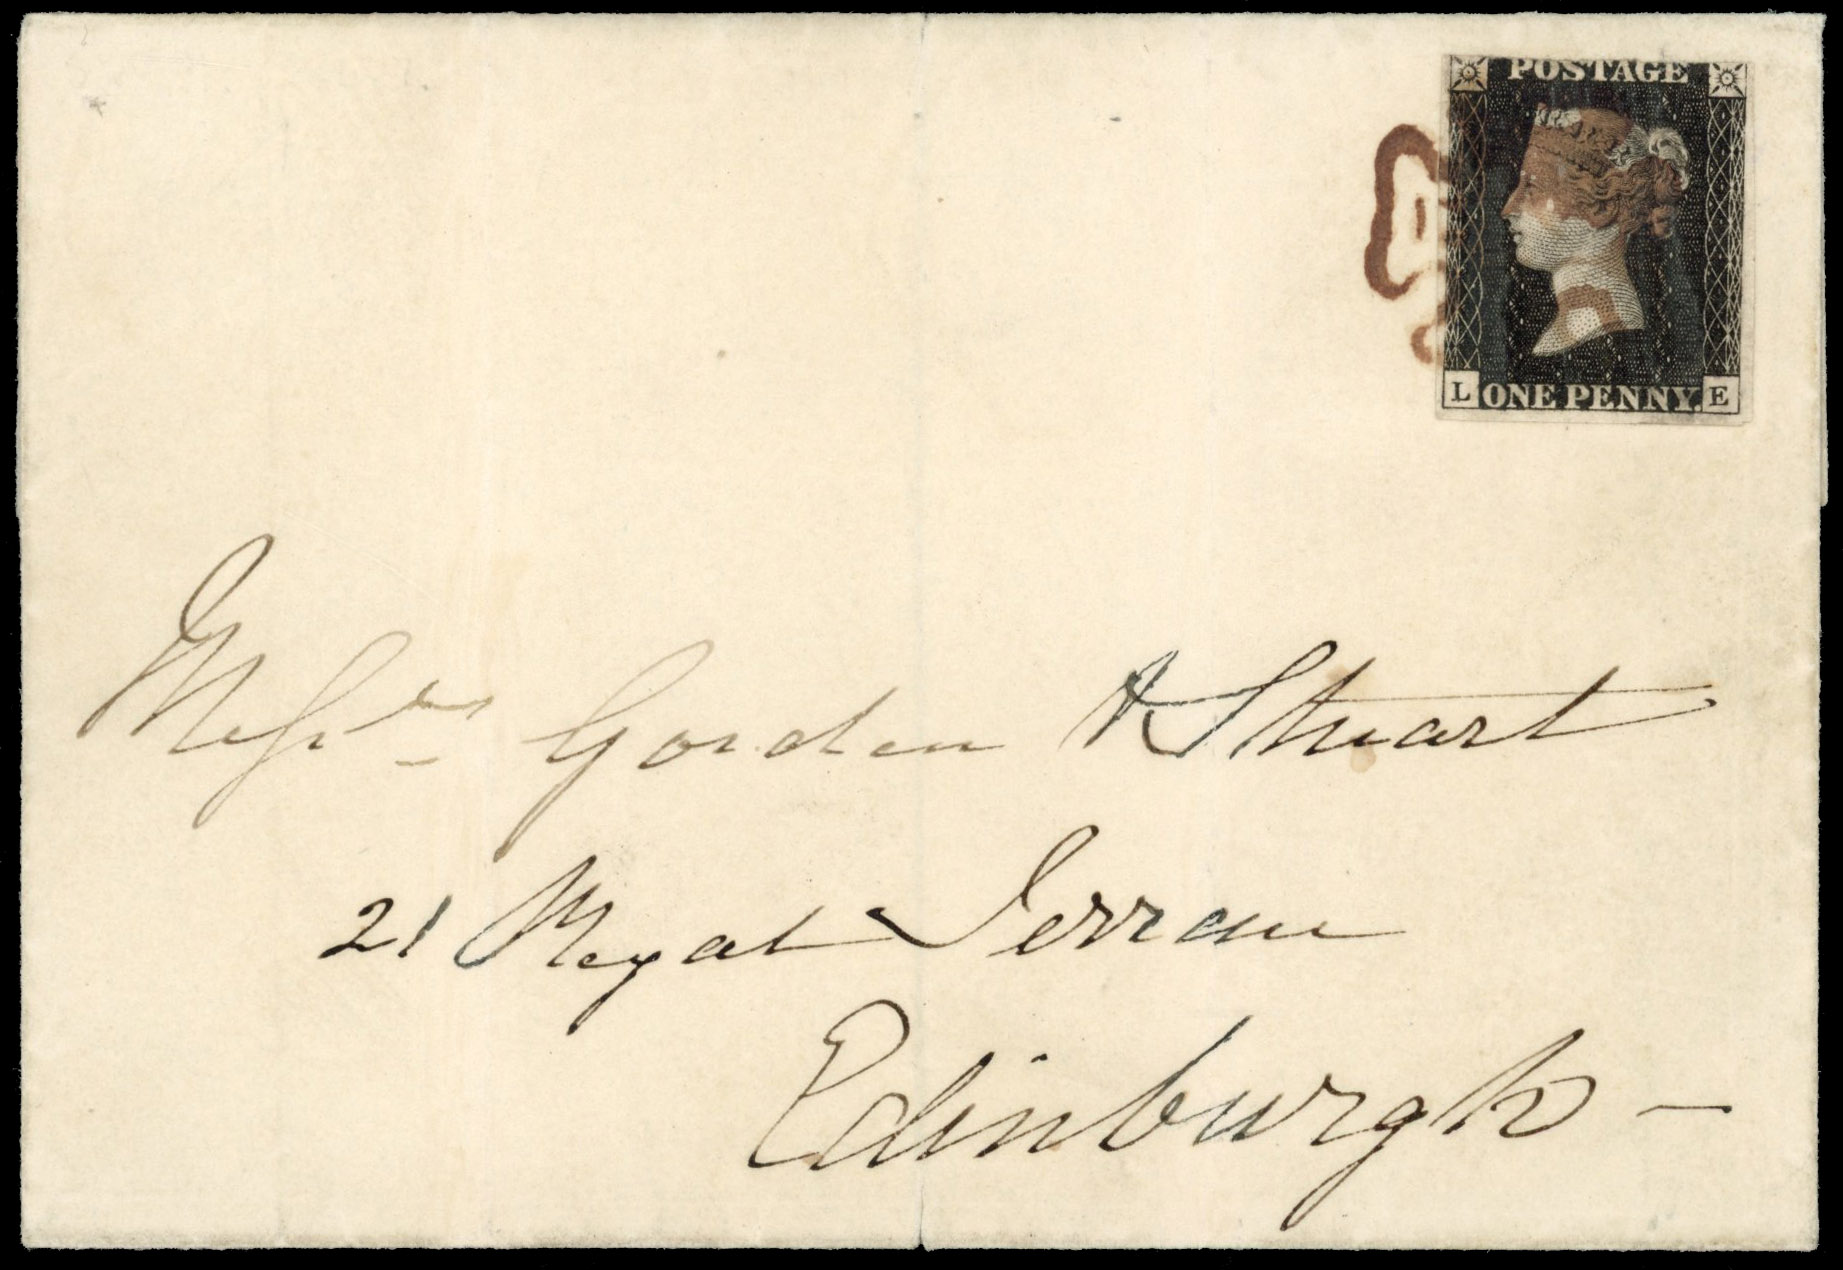 POSTAGE
L ONE PENNY. E
Messrs Gordon & Stuart
21 Royal Terrace
Edinburgh —